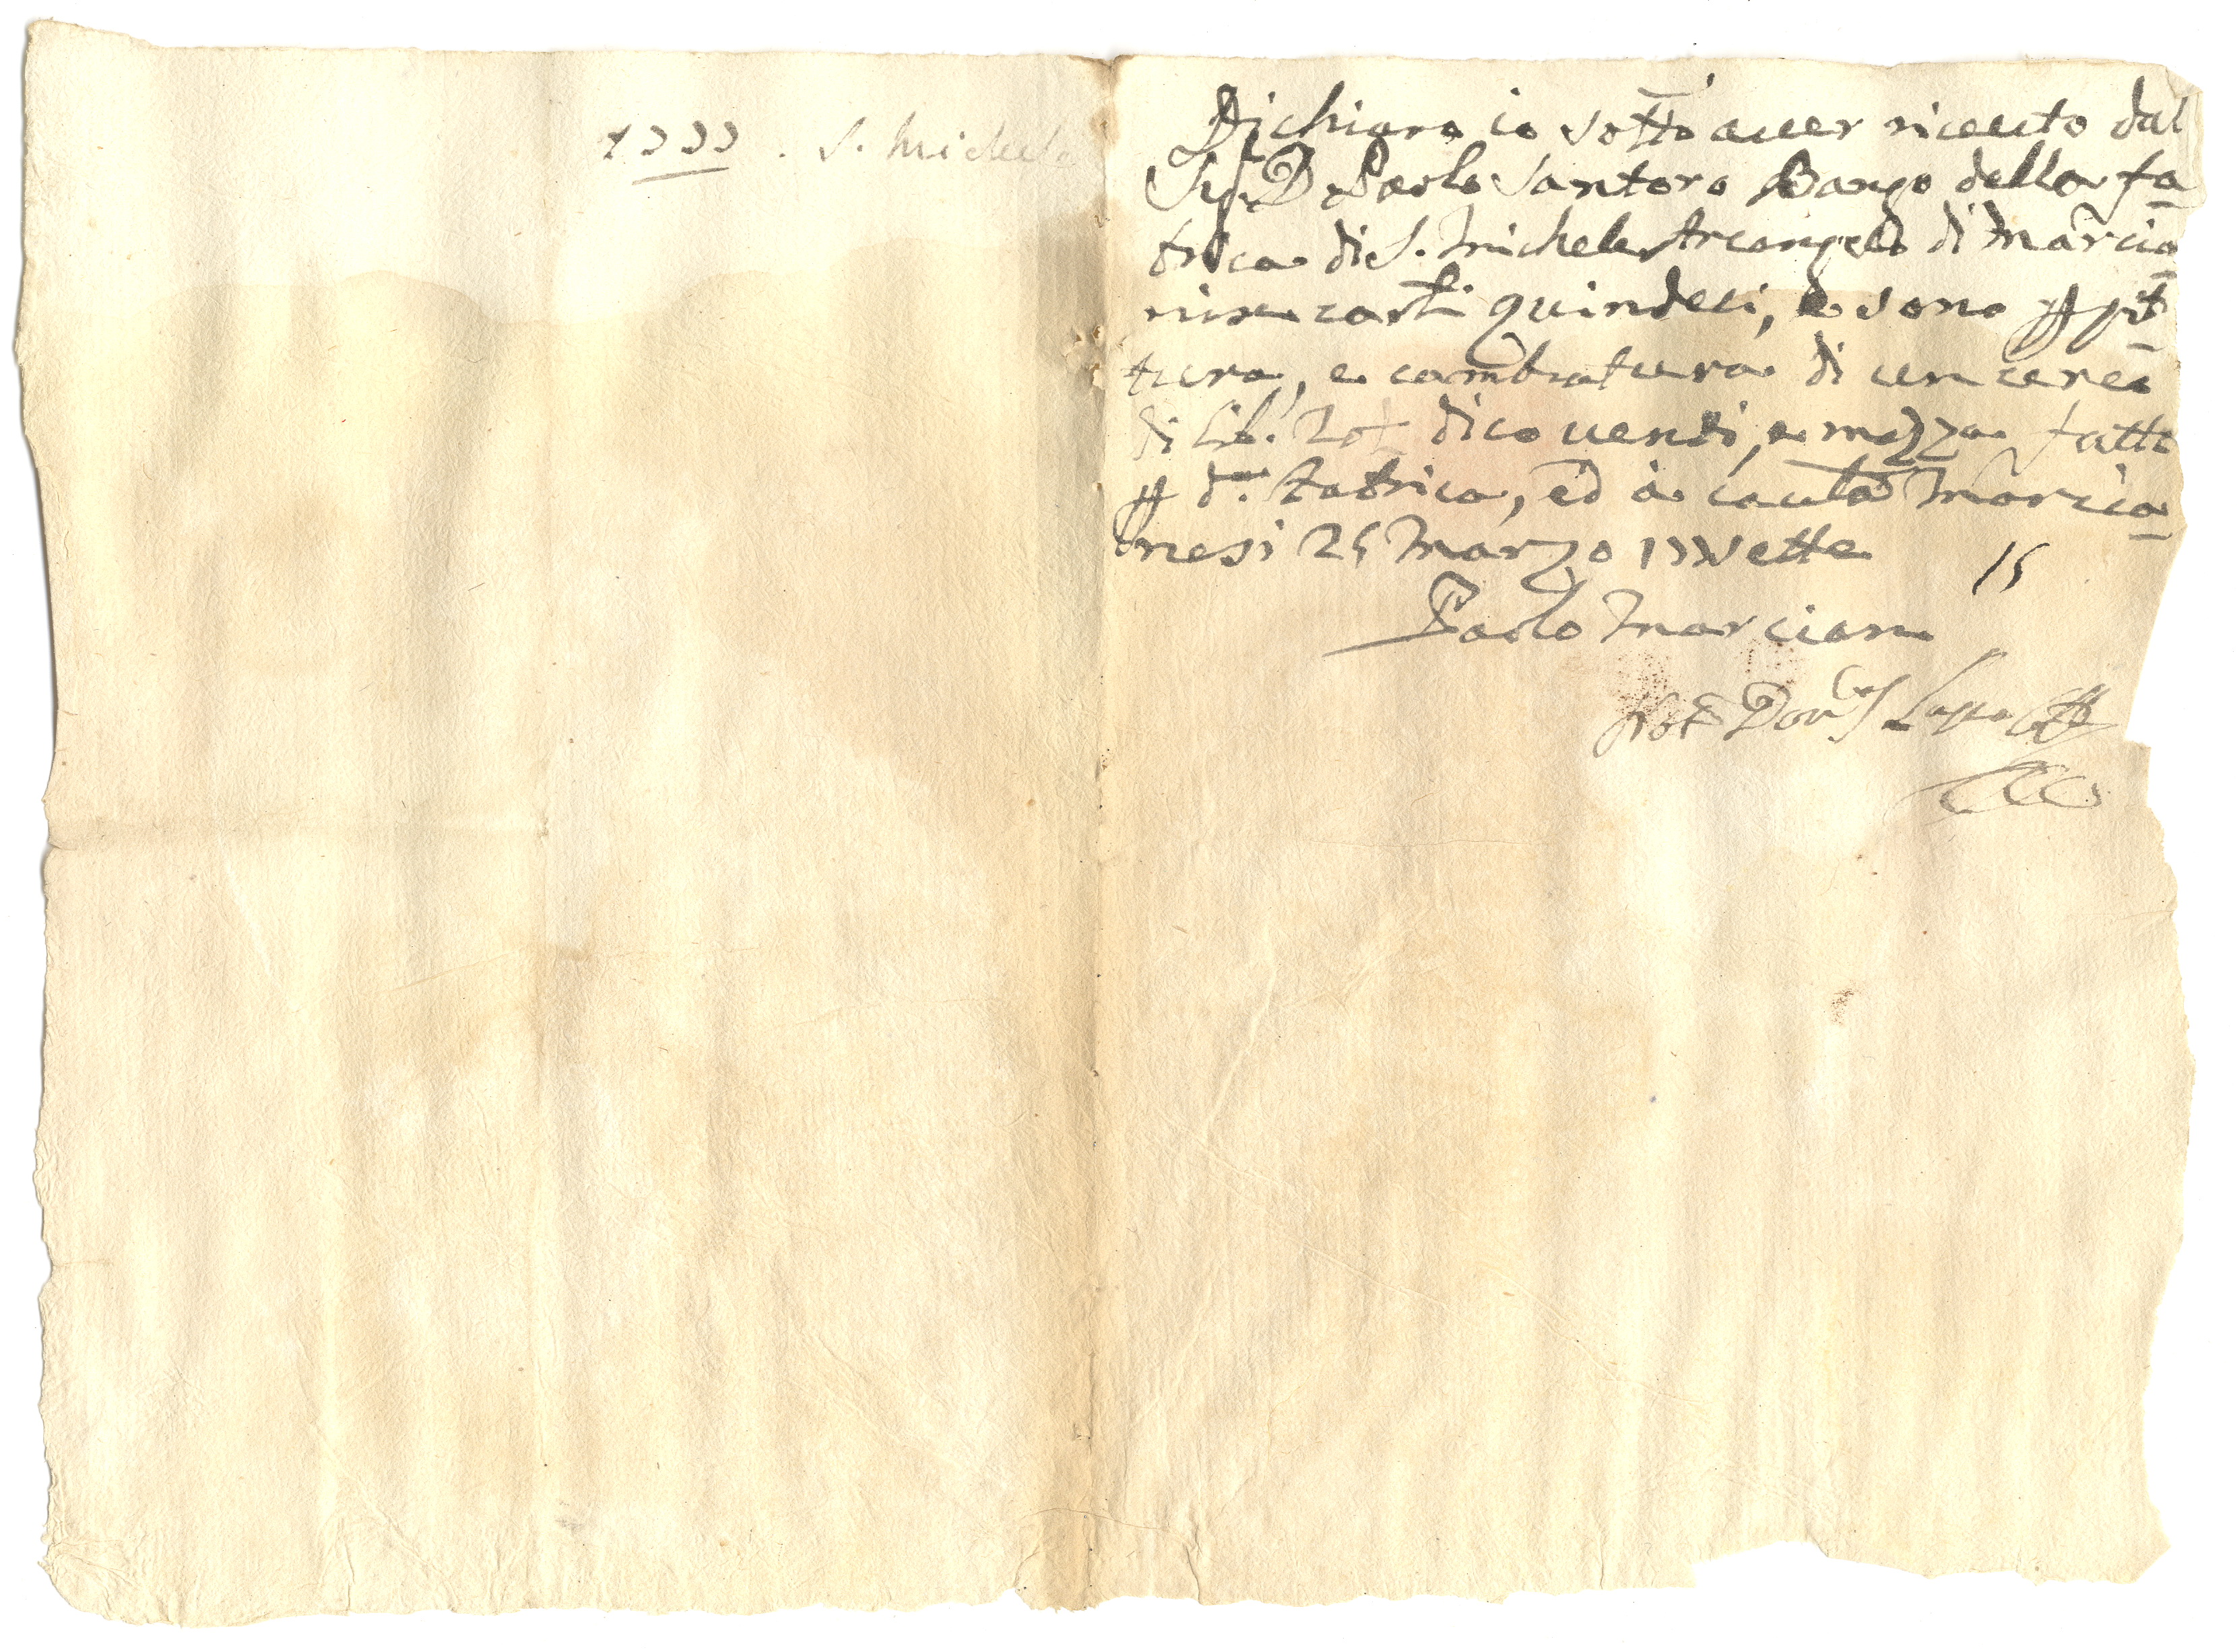 1777. S. Michele
Dichiaro io sotto aver riceuto dal
Sig. D. Paolo Santoro Banco della fa
brica di S. Michele Arcangelo di Marcia
nise carli quindeci, e sono p pit
tura, e cambiatura di un cereo
di lib. 20 dico venti, e mezza fatto
p d. fabrica, ed a cautela Marcia
nesi 25 Marzo 177sette
15
Paolo Marciano
Not